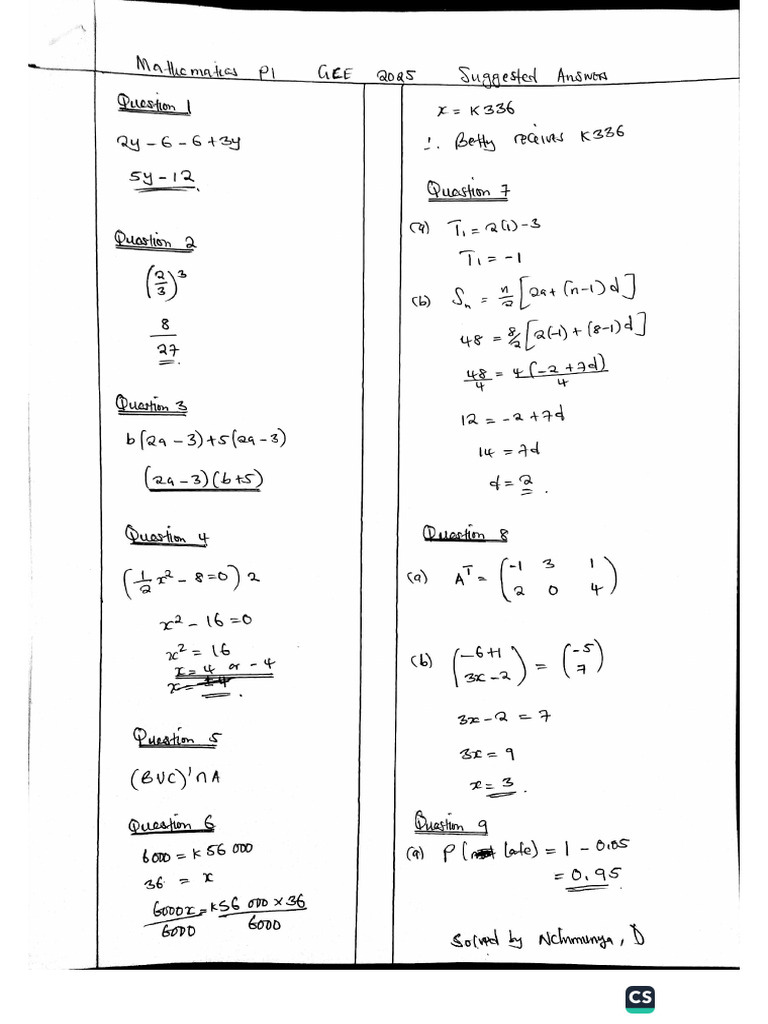 Mathematics P1 GCE 2025 Suggested Answers
Question 1
2y - 6 - 6 + 3y
5y - 12.
Question 2
(2/3)³
8/27
Question 3
b(2a - 3) + 5(2a - 3)
(2a - 3)(b + 5)
Question 4
(1/2 x² - 8 = 0) 2
x² - 16 = 0
x² = 16
x = 4 or - 4
x = ±4
Question 5
(BUC)'∩A
Question 6
6000 = K56 000
36 = x
6000x/6000 = K56 000 × 36/6000
x = K336
∴ Betty receives K336
Question 7
(a) T₁ = 2(1) - 3
T₁ = -1
(b) Sₙ = n/2 [2a + (n-1)d]
48 = 8/2 [2(-1) + (8-1)d]
48/4 = 4(-2 + 7d)/4
12 = -2 + 7d
14 = 7d
d = 2.
Question 8
(a) Aᵀ = (-1 3 1
2 0 4)
(b) (-6+1
3x-2) = (-5
7)
3x - 2 = 7
3x = 9
x = 3.
Question 9
(a) P( late) = 1 - 0.05
= 0.95
Solved by Nchimunya, D
CS